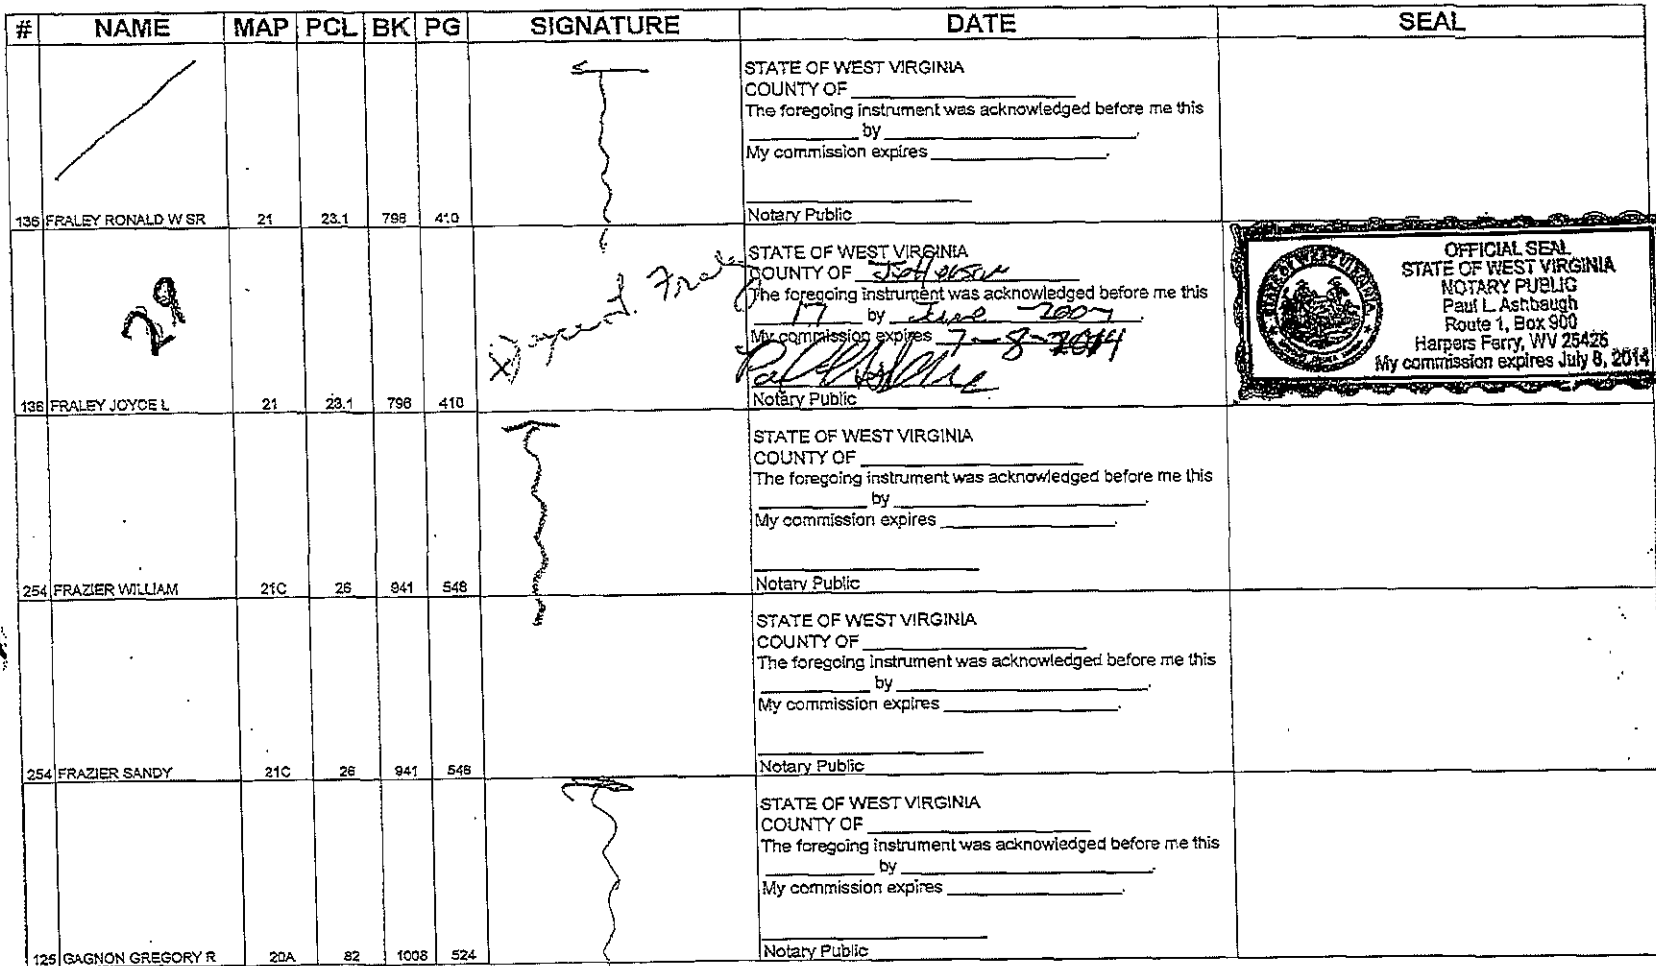 # NAME MAP PCL BK PG SIGNATURE DATE SEAL
STATE OF WEST VIRGINIA
COUNTY OF
The foregoing instrument was acknowledged before me this
by
My commission expires
Notary Public
136 FRALEY RONALD W SR 21 23.1 798 410
29
X Joyce L. Fraley
STATE OF WEST VIRGINIA
COUNTY OF Jefferson
The foregoing instrument was acknowledged before me this
17 by June 2007
My commission expires 7-8-2014
Notary Public
OFFICIAL SEAL
STATE OF WEST VIRGINIA
NOTARY PUBLIC
Paul L. Ashbaugh
Route 1, Box 900
Harpers Ferry, WV 25425
My commission expires July 8, 2014
136 FRALEY JOYCE L 21 23.1 798 410
STATE OF WEST VIRGINIA
COUNTY OF
The foregoing instrument was acknowledged before me this
by
My commission expires
Notary Public
254 FRAZIER WILLIAM 21C 26 941 548
STATE OF WEST VIRGINIA
COUNTY OF
The foregoing instrument was acknowledged before me this
by
My commission expires
Notary Public
254 FRAZIER SANDY 21C 26 941 548
STATE OF WEST VIRGINIA
COUNTY OF
The foregoing instrument was acknowledged before me this
by
My commission expires
Notary Public
125 GAGNON GREGORY R 20A 82 1008 524